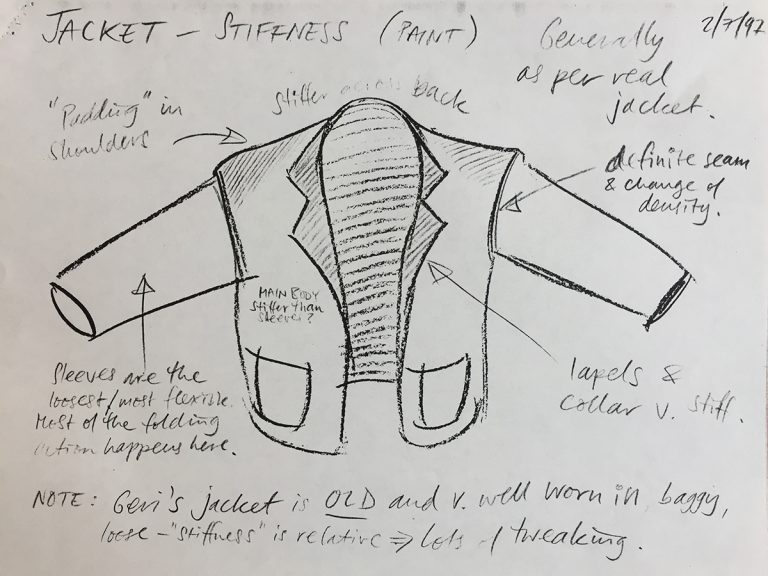 JACKET – STIFFNESS (PAINT)
2/7/97
Generally
as per real
jacket.
"Padding" in
shoulders
stiffer across back
definite seam
& change of
density.
MAIN BODY
stiffer than
sleeves?
Sleeves are the
loosest/most flexible.
Most of the folding
action happens here.
lapels &
collar v. stiff.
NOTE: Geri's jacket is OLD and v. well worn in, baggy,
loose – "stiffness" is relative ⇒ lots of tweaking.